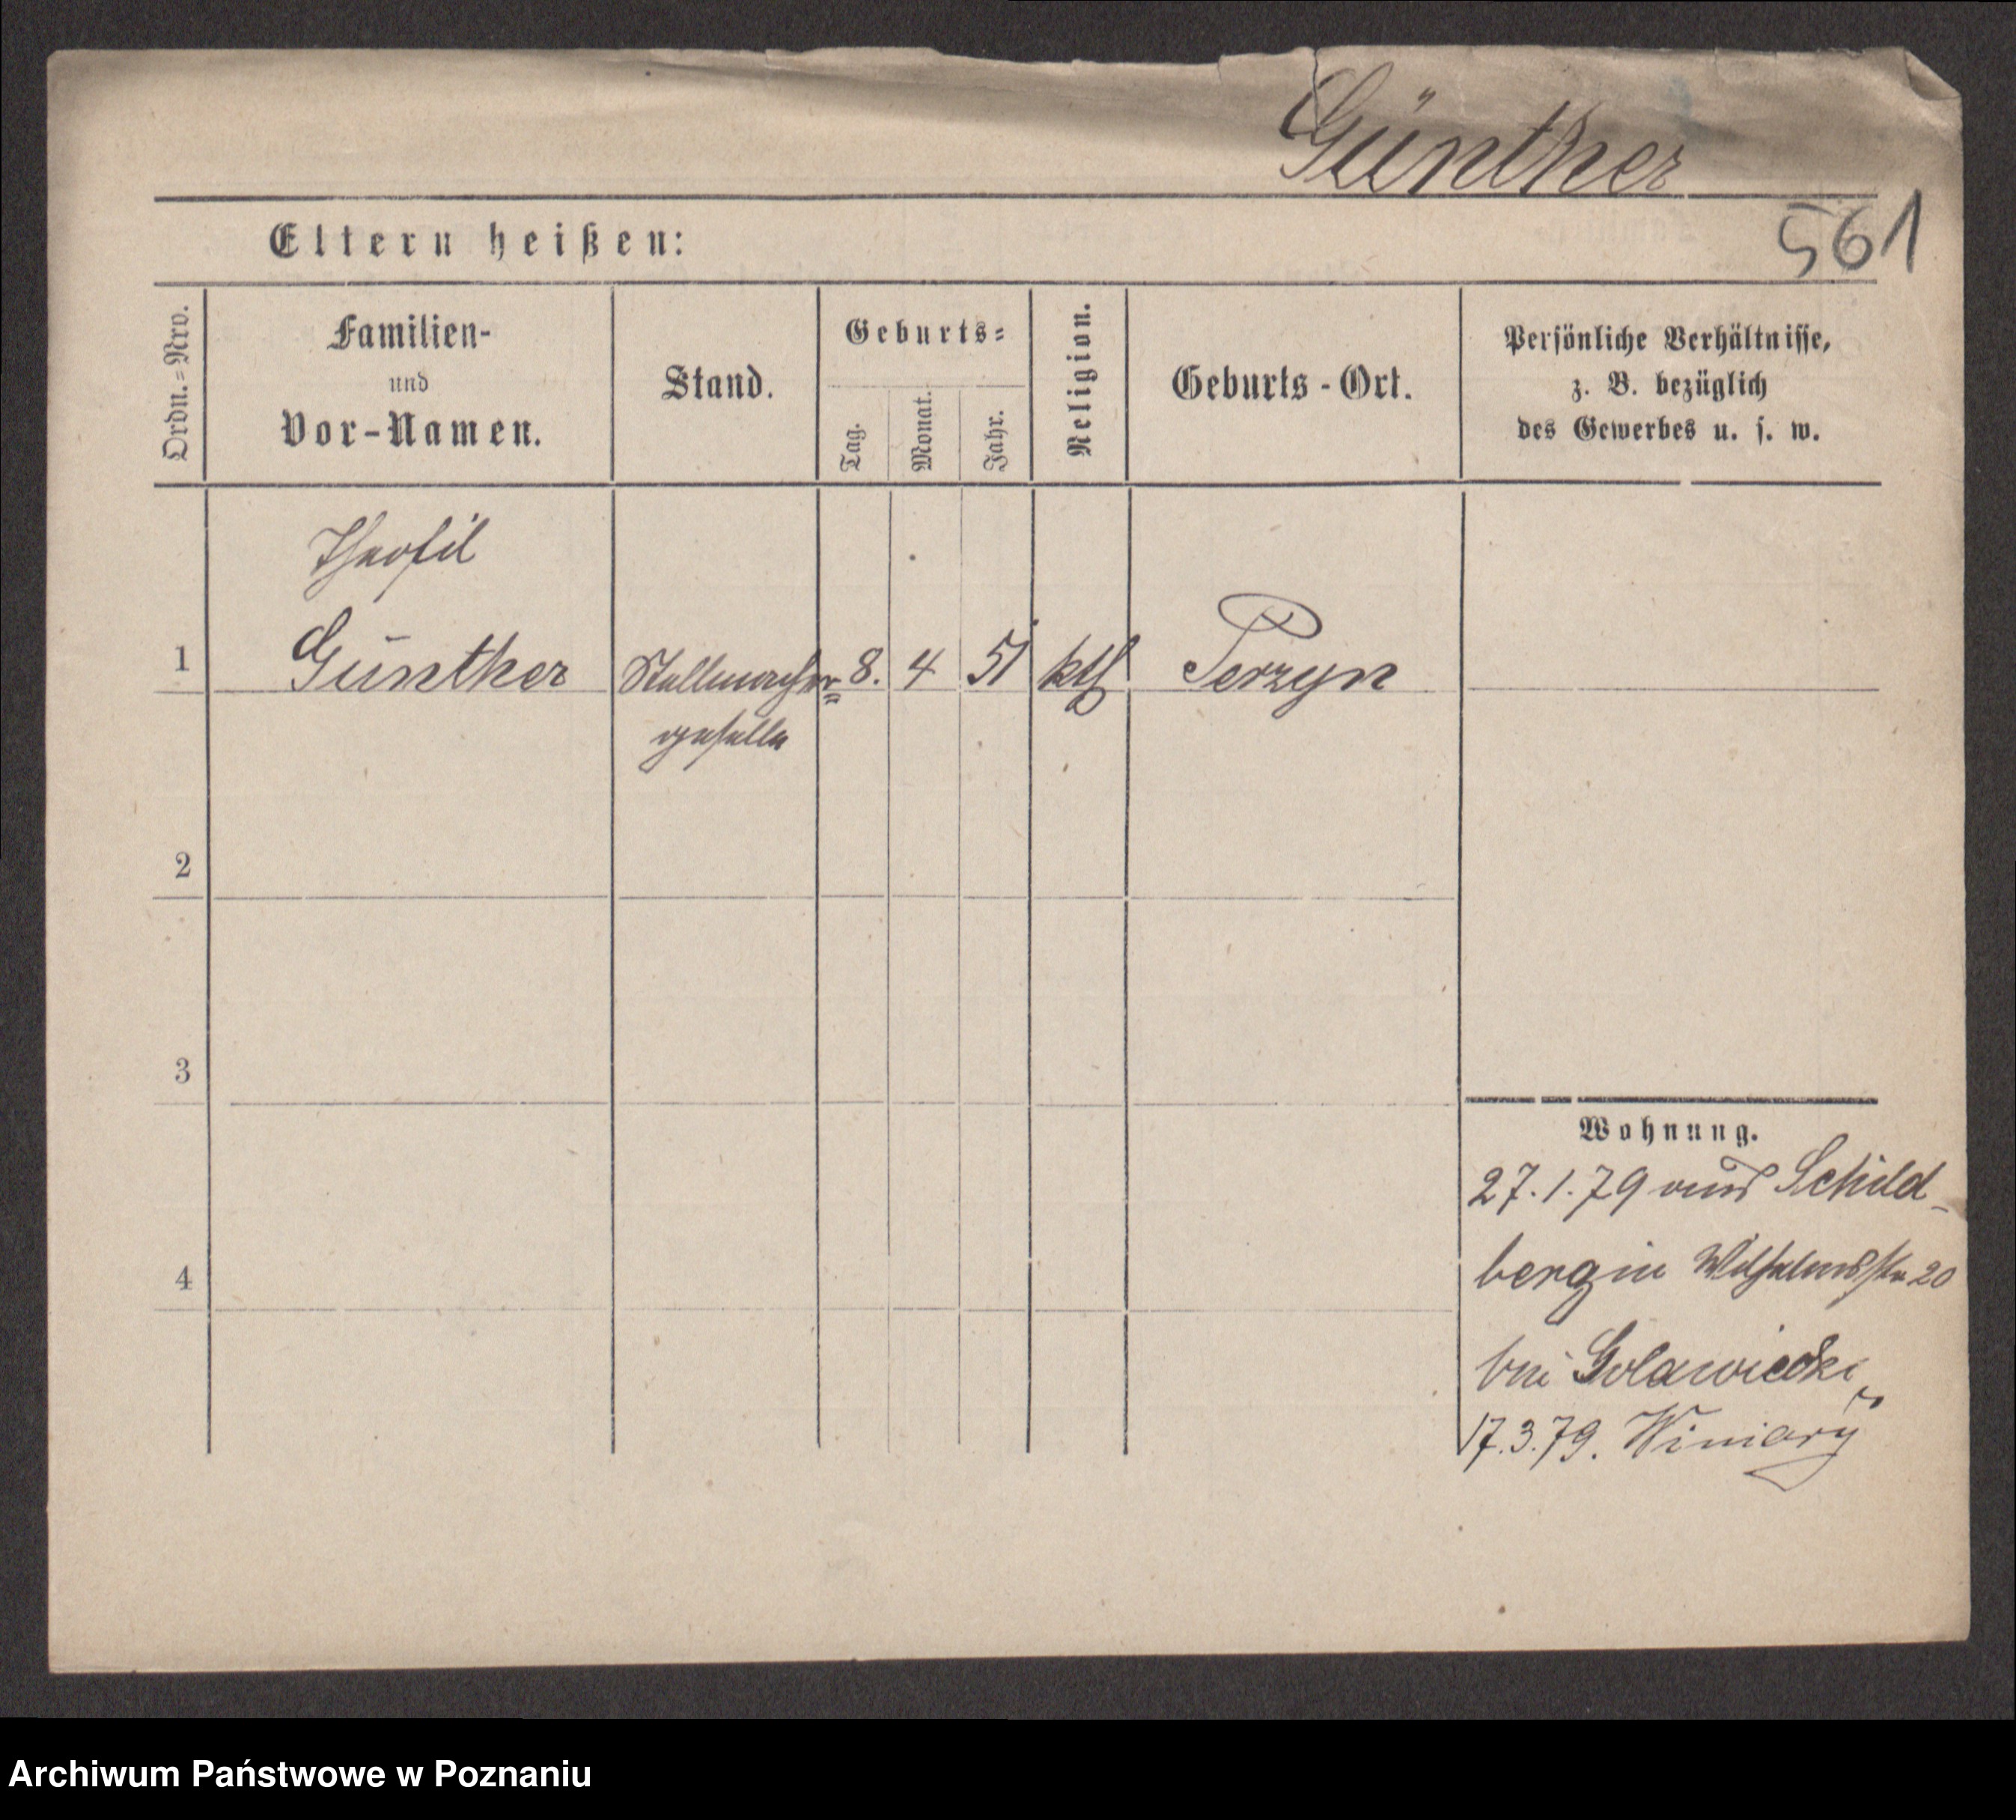 Günther
561
Eltern heißen:
Ordn.=Nro.
Familien-
und
Vor-Namen.
Stand.
Geburts=
Tag.
Monat.
Jahr.
Religion.
Geburts-Ort.
Persönliche Verhältnisse,
z. B. bezüglich
des Gewerbes u. s. w.
Theofil
1 Günther Stellmacher= 8. 4 51 kth Perzyn
geselle
2
3
4
Wohnung.
27.1.79 aus Schild-
berg in Wilhelmsstr 20
bei Golawiecki
17.3.79. Winiary
Archiwum Państwowe w Poznaniu